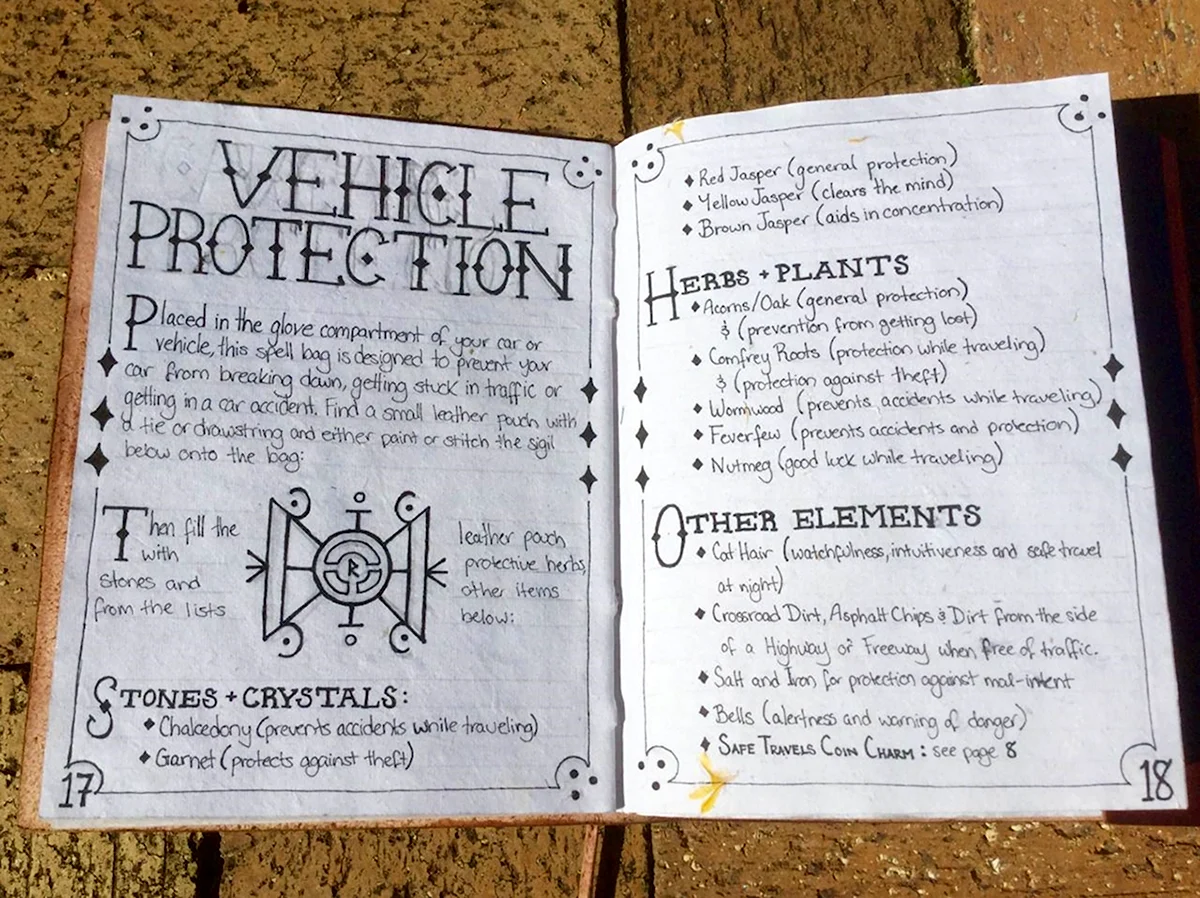 VEHICLE
PROTECTION
Placed in the glove compartment of your car or
vehicle, this spell bag is designed to prevent your
car from breaking down, getting stuck in traffic or
getting in a car accident. Find a small leather pouch with
a tie or drawstring and either paint or stitch the sigil
below onto the bag:
Then fill the leather pouch
with protective herbs,
stones and other items
from the lists below:
R
STONES + CRYSTALS:
♦ Chalcedony (prevents accidents while traveling)
♦ Garnet (protects against theft)
17
♦ Red Jasper (general protection)
♦ Yellow Jasper (clears the mind)
♦ Brown Jasper (aids in concentration)
HERBS + PLANTS
♦ Acorns/Oak (general protection)
& (prevention from getting lost)
♦ Comfrey Roots (protection while traveling)
& (protection against theft)
♦ Wormwood (prevents accidents while traveling)
♦ Feverfew (prevents accidents and protection)
♦ Nutmeg (good luck while traveling)
OTHER ELEMENTS
♦ Cat Hair (watchfulness, intuitiveness and safe travel
at night)
♦ Crossroad Dirt, Asphalt Chips & Dirt from the side
of a Highway or Freeway when free of traffic.
♦ Salt and Iron for protection against mal-intent
♦ Bells (alertness and warning of danger)
♦ SAFE TRAVELS COIN CHARM: see page 8
18